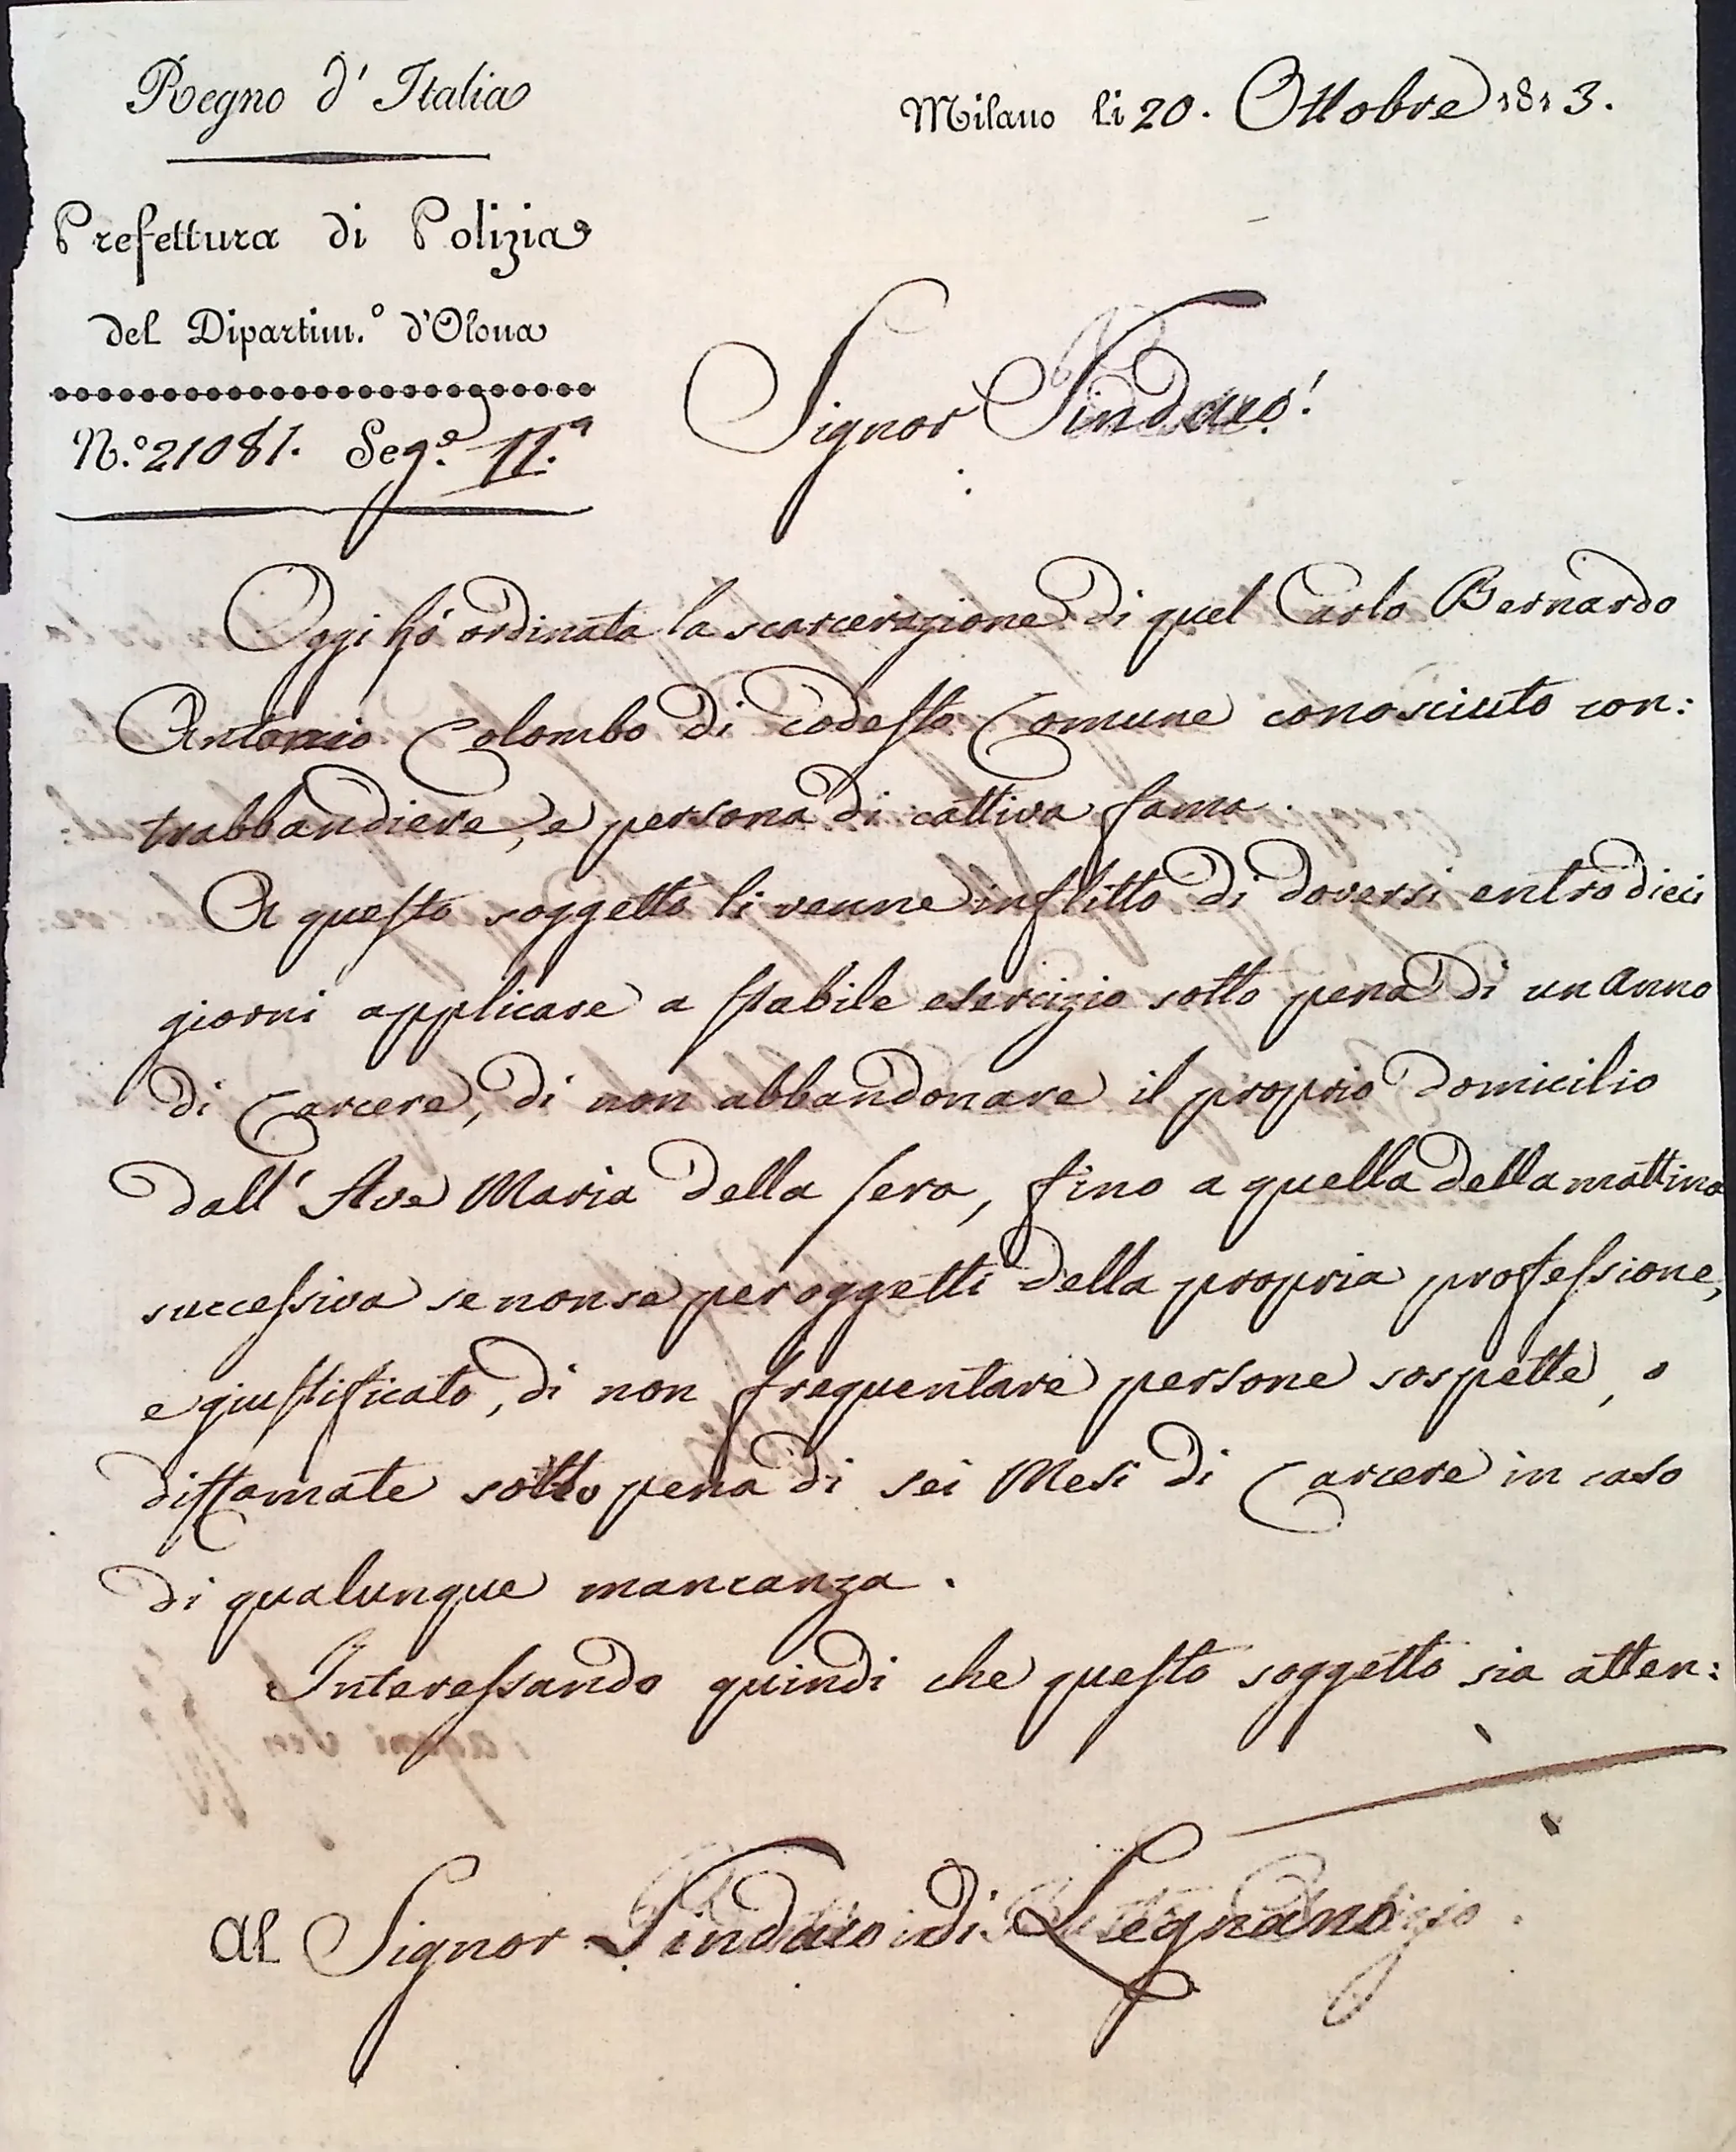 Regno d' Italia
Milano li 20. Ottobre 1813.
Prefettura di Polizia
del Dipartim.º d'Olona
N.º 21081. Seg.ª II.ª
Signor Sindaco!
Oggi hó ordinata la scarcerazione di quel Carlo Bernardo
Antonio Colombo di codesto Comune conosciuto con:
trabbandiere, e persona di cattiva fama.
A questo soggetto li venne inflitto di doversi entro dieci
giorni applicare a stabile esercizio sotto pena di un Anno
di Carcere, di non abbandonare il proprio domicilio
dall' Ave Maria della sera, fino a quella della mattina
successiva se non se per oggetti della propria professione,
e giustificato, di non frequentare persone sospette, o
diffamate sotto pena di sei Mesi di Carcere in caso
di qualunque mancanza.
Interessando quindi che questo soggetto sia atten:
Al Signor Sindaco di Legnano